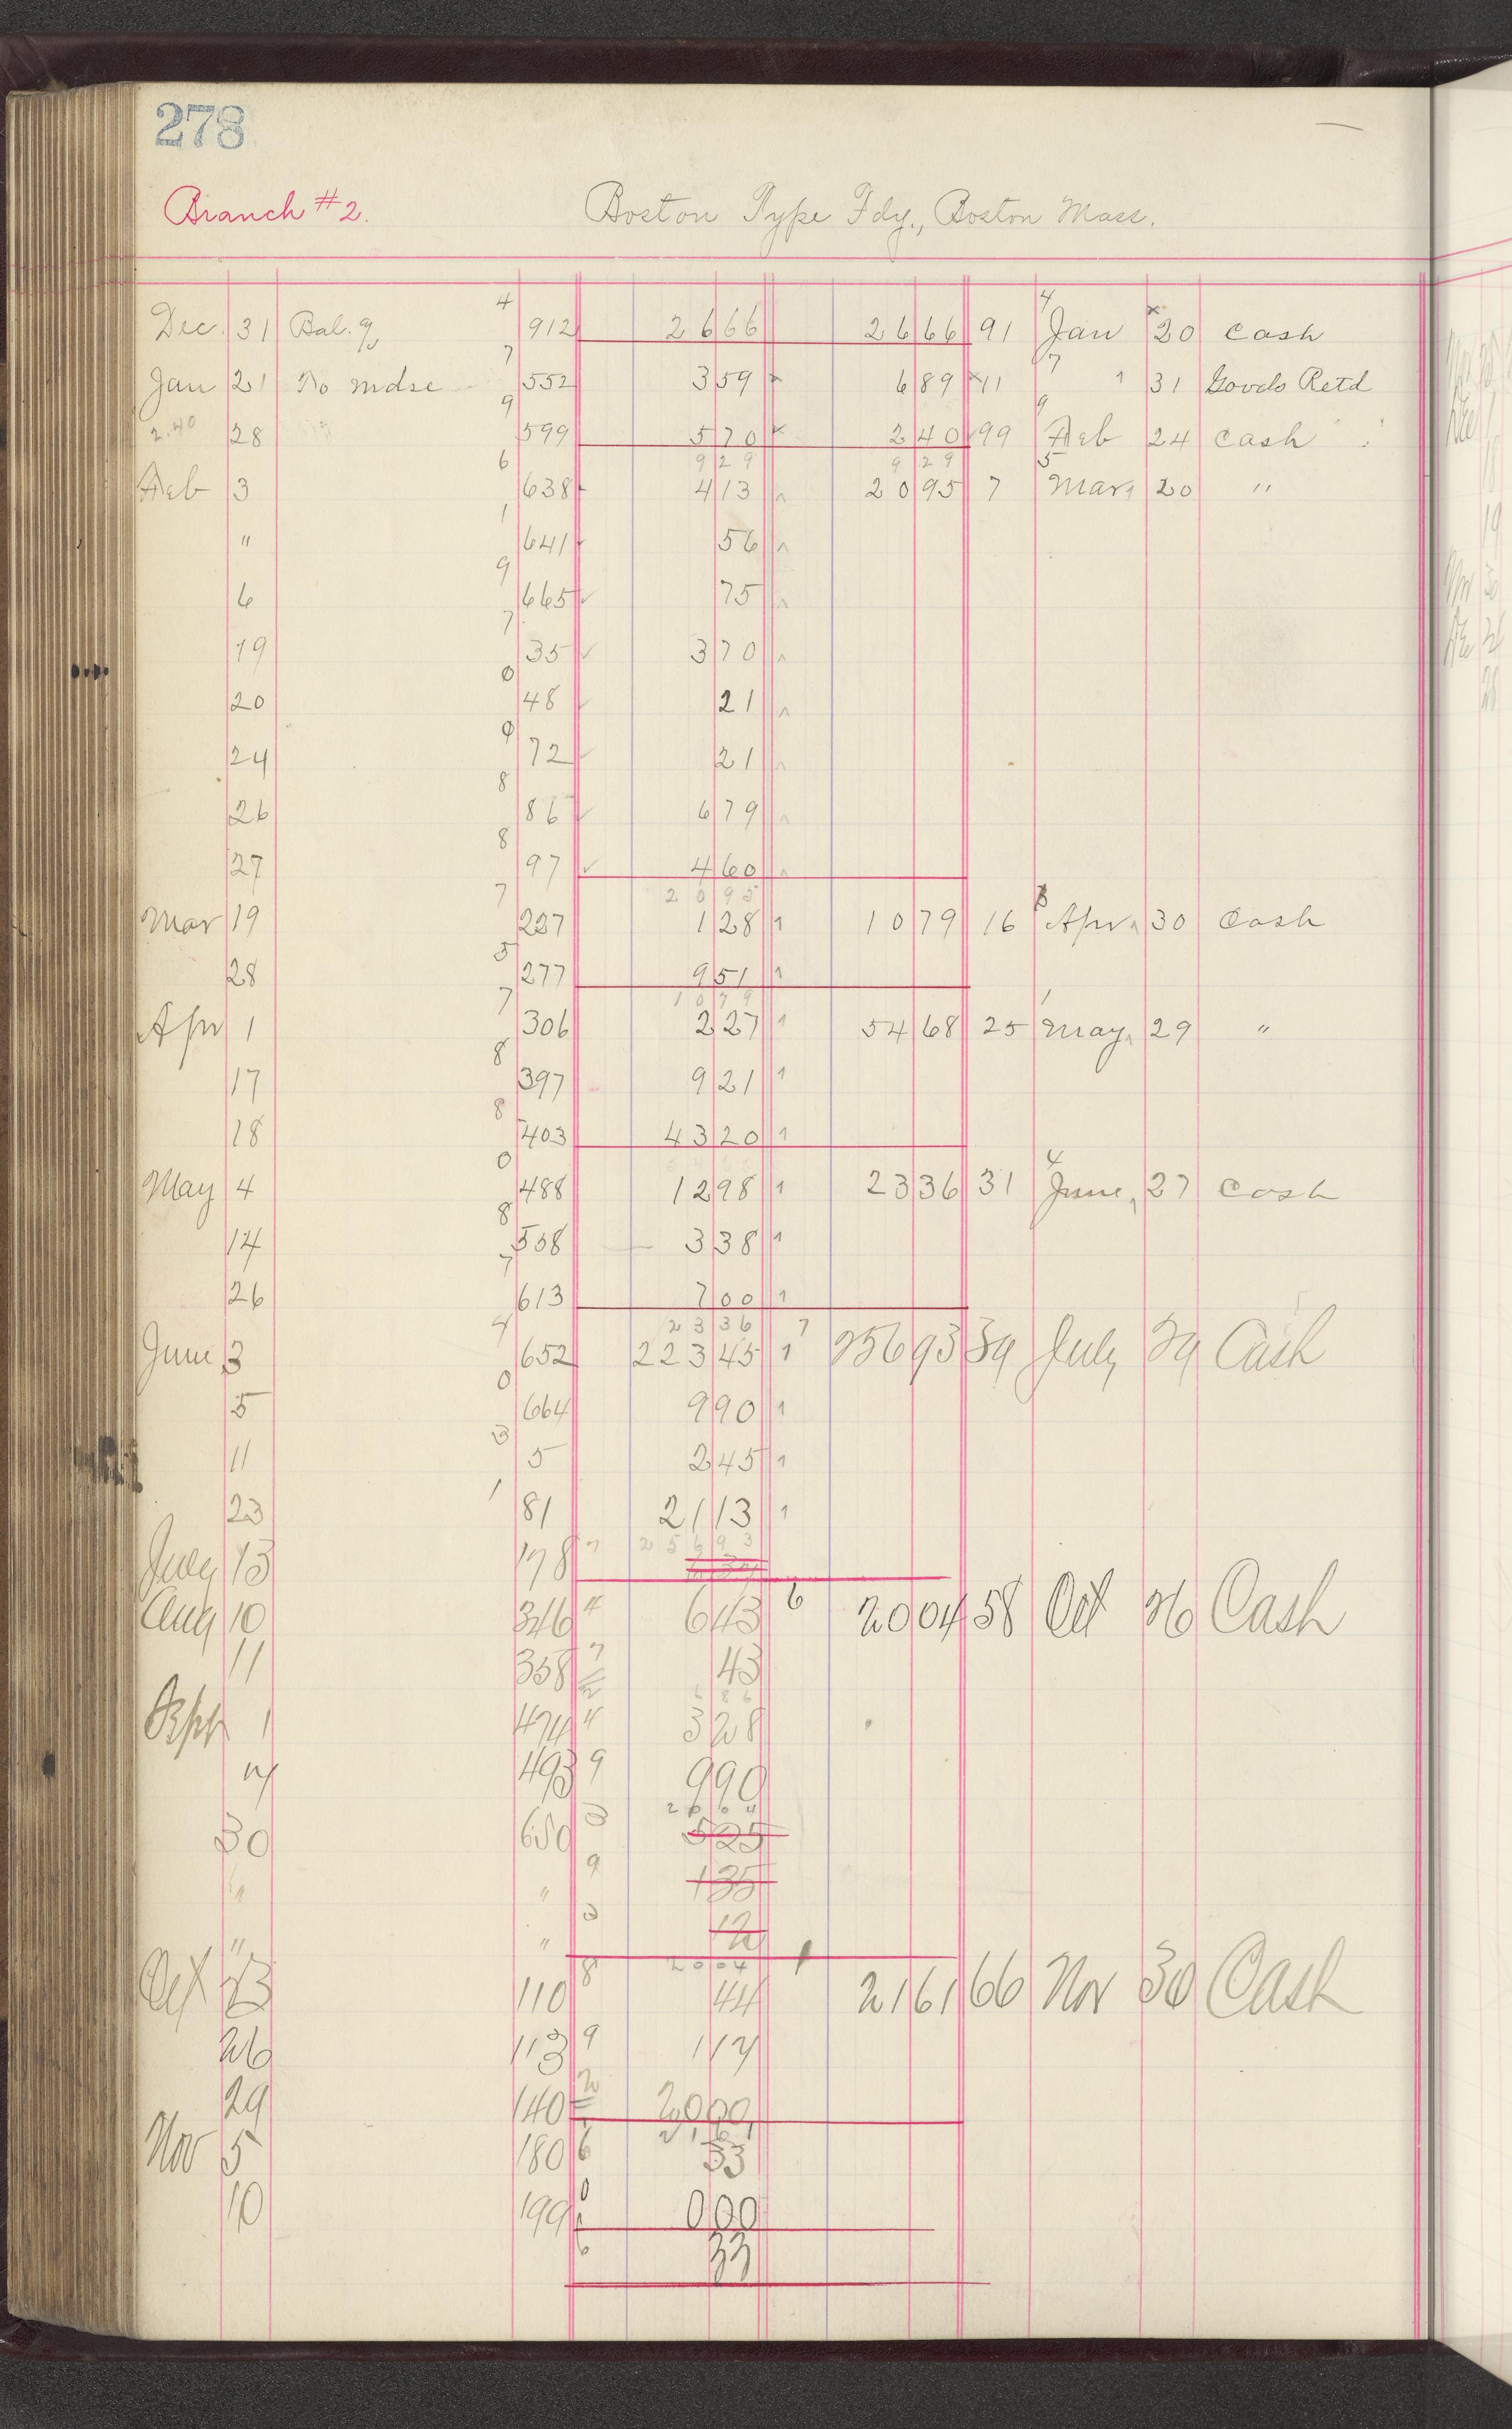 278
Branch #2. Boston Type Fdy., Boston Mass.
4 4 x
Dec. 31 Bal. 912 2666 2666 91 Jan 20 Cash
7 7
Jan 21 To mdse 552 359 x 689 x 11 " 31 Goods Retd
9 9
2.40 28 599 570 x 240 99 Feb 24 Cash
6 929 929 5
Feb 3 638 413 2095 7 Mar 20 "
1
" 641 56
9
6 665 75
7
19 35 370
0
20 48 21
9
24 72 21
8
26 86 679
8
27 97 460
7 2095
Mar 19 227 128 1 1079 16 Apr 30 Cash
5
28 277 951 1
7 1079 1
Apr 1 306 227 1 5468 25 May 29 "
8
17 397 921 1
8
18 403 4320 1
0 4
May 4 488 1298 1 2336 31 June 27 Cash
8
14 558 338 1
7
26 613 700 1
4 2336 7
June 3 652 22345 1 25693 39 July 29 Cash
0
5 664 990 1
3
11 5 245 1
1
23 81 2113 1
25693
July 13 178 7
6
Aug 10 346 4 643 2004 58 Oct 26 Cash
11 358 7 43
686
Sept 1 474 4 328
14 493 9 990
2004
30 650 3 525
" " 9 135
" " 3 12
8 2004
Oct 23 110 44 2161 66 Nov 30 Cash
26 113 9 117
29 140 2 2000
2161
Nov 5 180 6 33
10 199 0 000
6 33